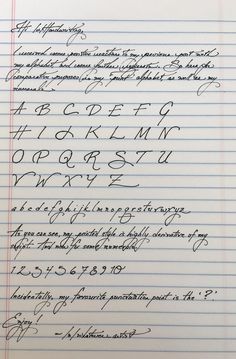 Hi /r/handwriting,
I received some positive reactions to my previous post with
my alphabet and some further requests. So here, for
comparative purposes, is my print alphabet as well as my
numerals.
A B C D E F G
H I J K L M N
O P Q R S T U
V W X Y Z
a b c d e f g h i j k l m n o p q r s t u v w x y z
As you can see, my printed style is highly derivative of my
script. And now for some numerals:
1 2 3 4 5 6 7 8 9 10
Incidentally, my favourite punctuation point is the '?'
Enjoy!